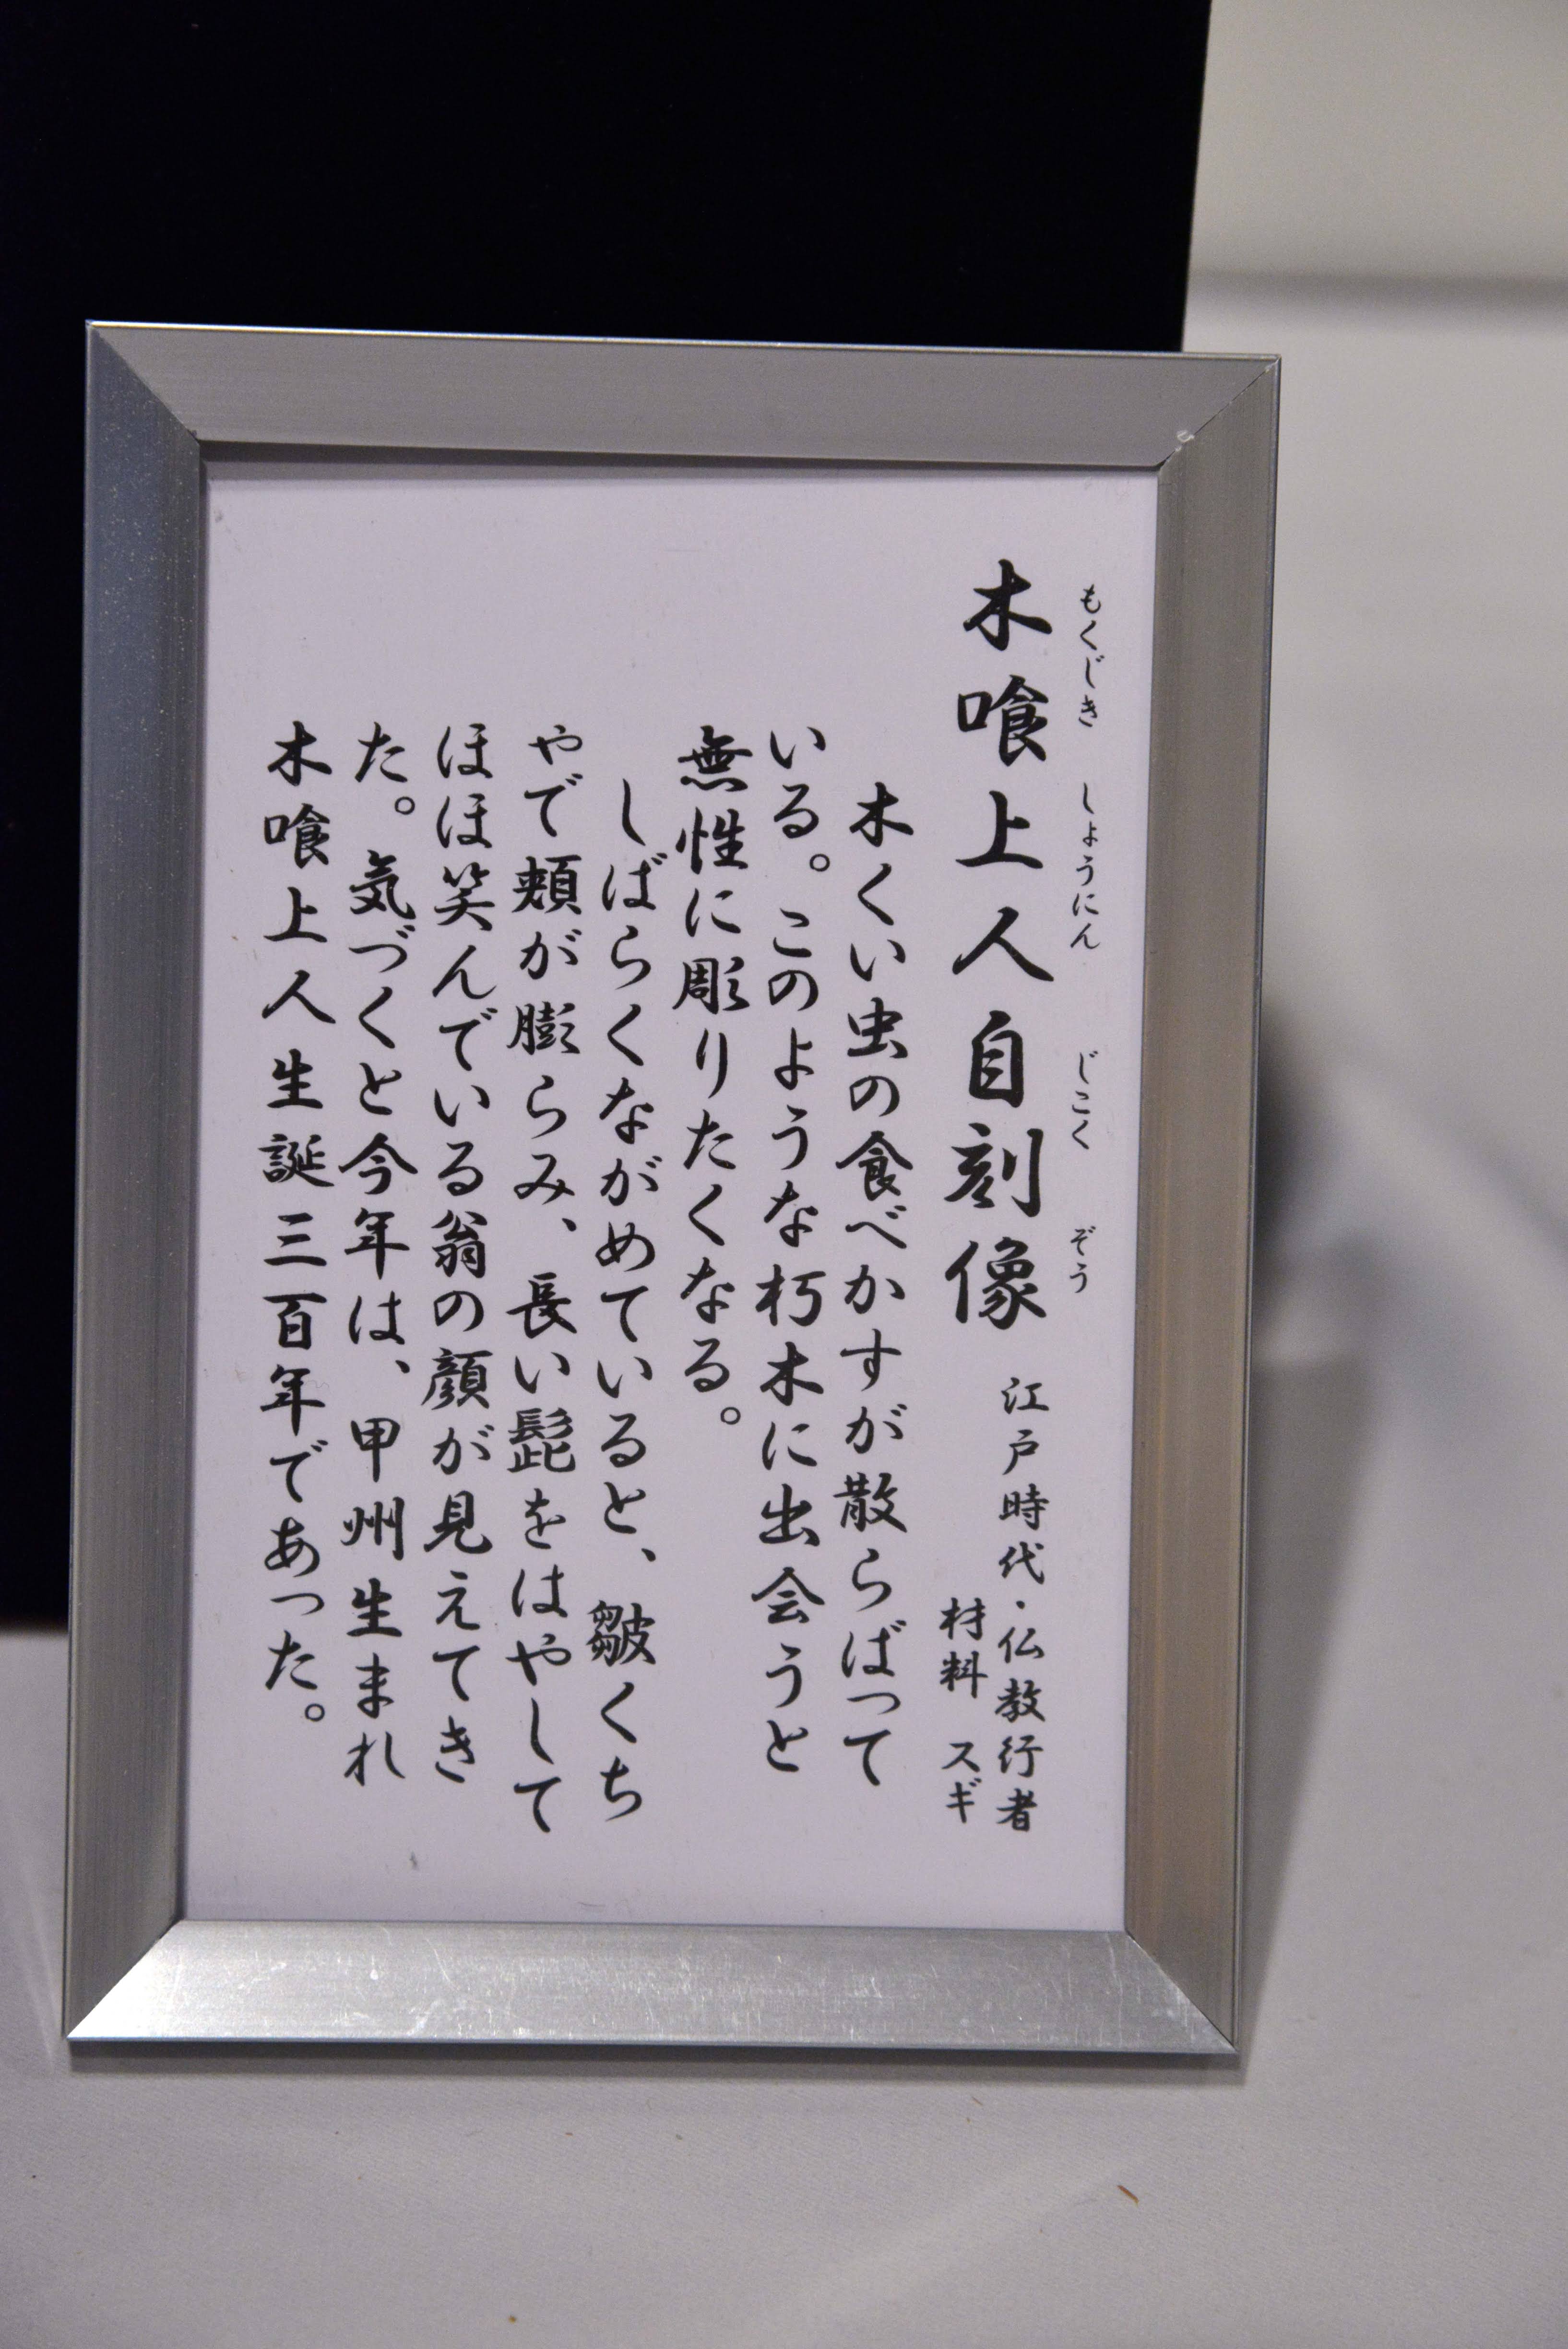 木喰上人自刻像
もくじき しょうにん じこく ぞう
江戸時代・仏教行者
材料 スギ
木くい虫の食べかすが散らばって
いる。このような朽木に出会うと
無性に彫りたくなる。
しばらくながめていると、皺くち
やで頬が膨らみ、長い髭をはやして
ほほ笑んでいる翁の顔が見えてき
た。気づくと今年は、甲州生まれ
木喰上人生誕三百年であった。